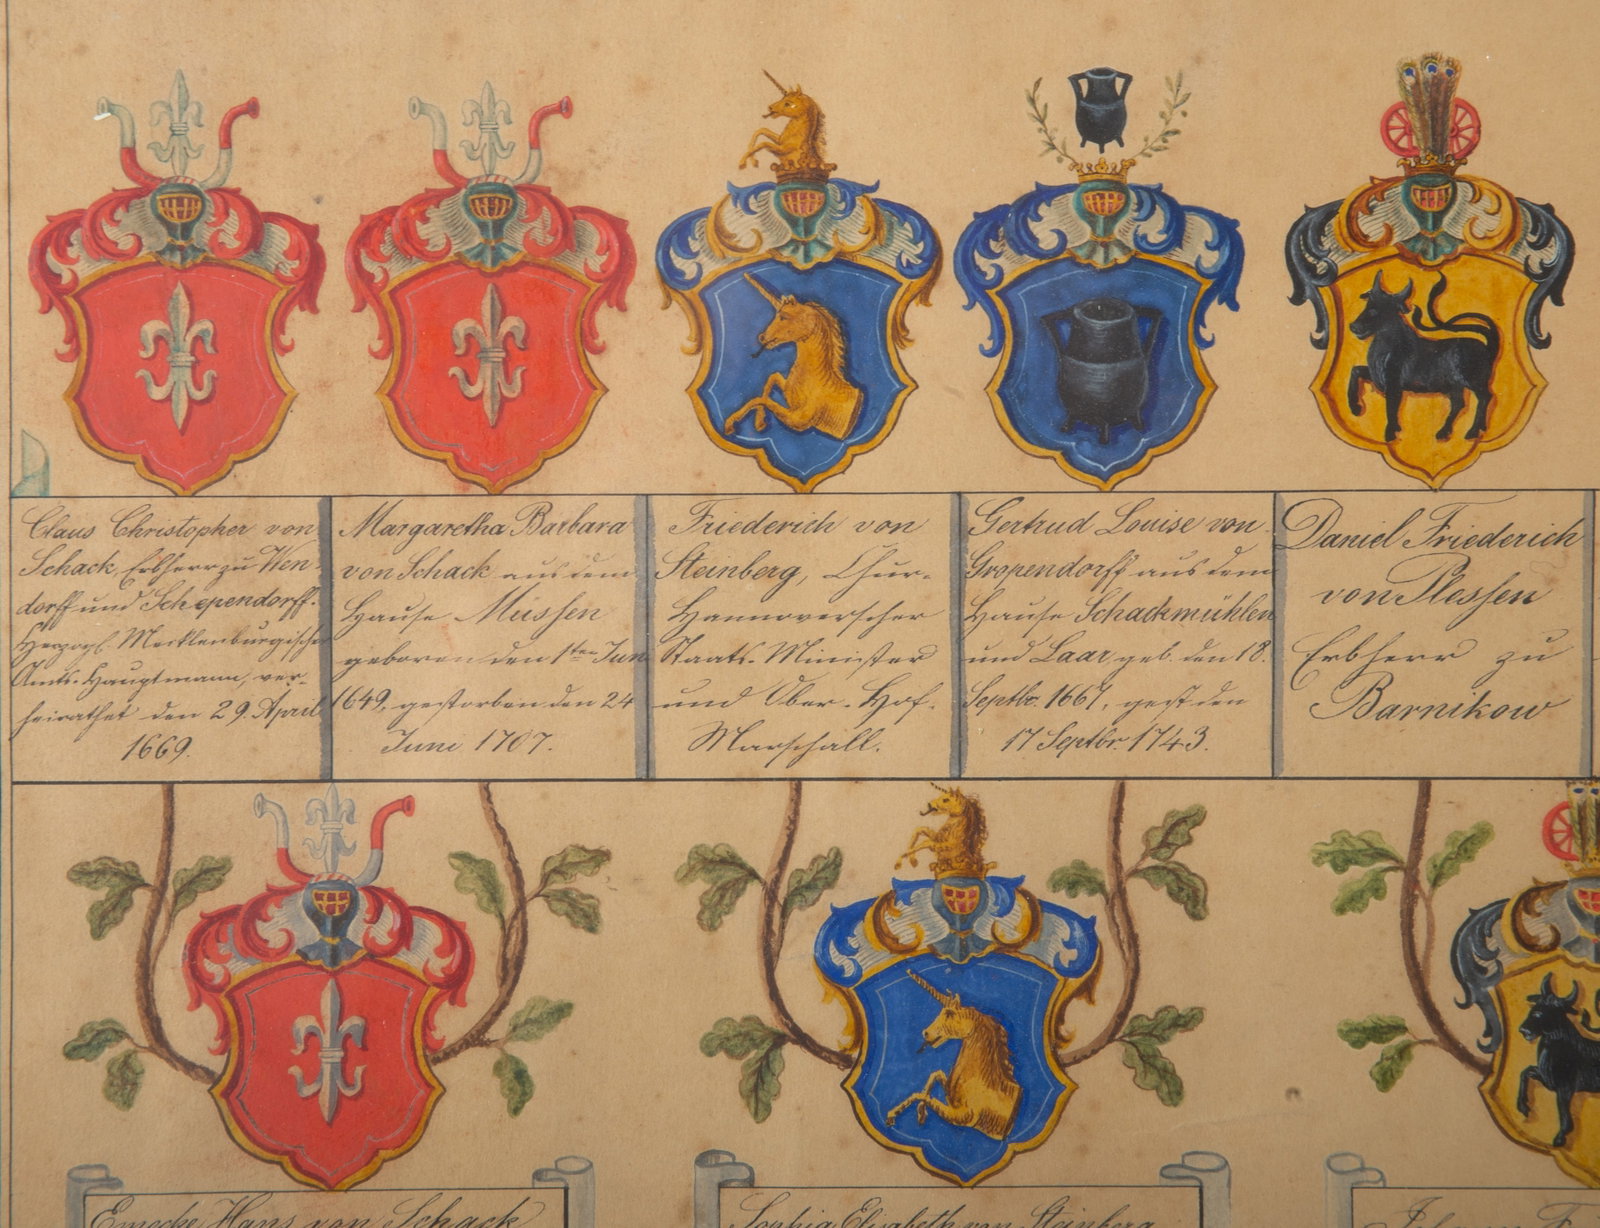 Claus Christopher von
Schack, Erbherr zu Wen-
dorff und Schependorff.
Herzogl. Mecklenburgische
Amts-Hauptmann, ver-
heirathet den 29. April
1669.
Margaretha Barbara
von Schack aus dem
Hause Müssen
geboren den 1ten Jun
1649. gestorben den 24
Juni 1707.
Friederich von
Steinberg, Chur-
Hannoverscher
Staats-Minister
und Ober-Hof-
Marschall.
Gertrud Louise von
Gropendorff aus dem
Hause Schackmühlen
und Laar geb. den 18.
Septbr. 1667, gest den
17 Septbr. 1743.
Daniel Friederich
von Plessen
Erbherr zu
Barnikow
Emecke Hans von Schack
Sophia Elisabeth von Steinberg